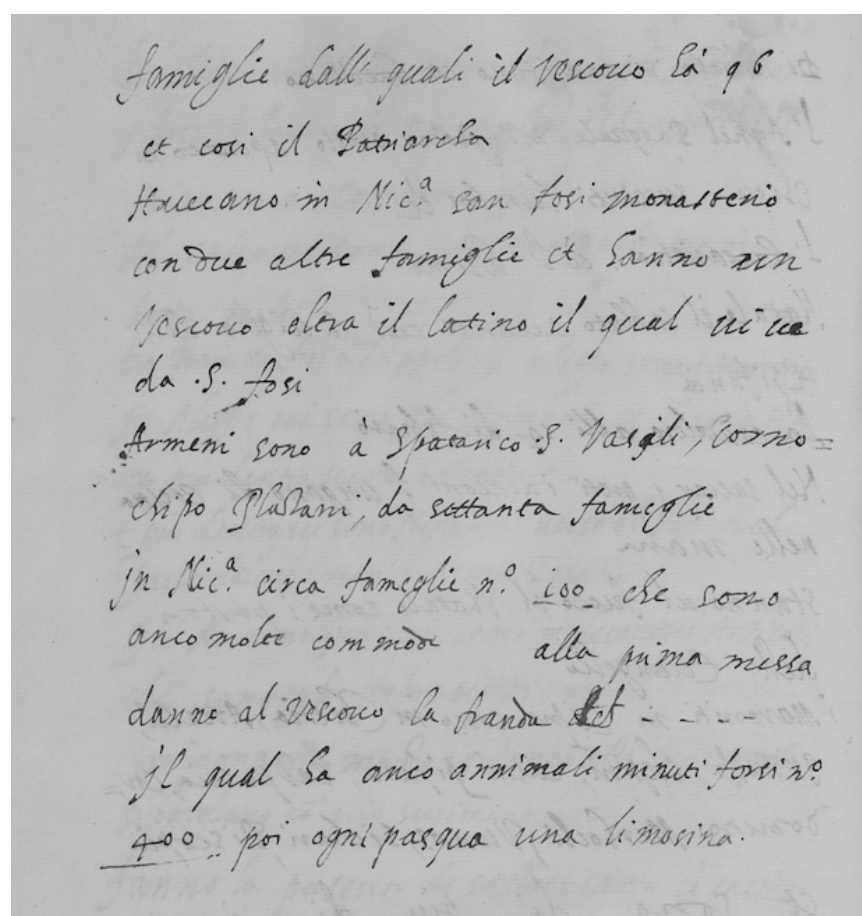 famiglie dalli quali il Vescouo hà 96
et cosi il Patriarcha
Haueano in Nic.ª san fosi monasterio
con due altre famiglie et hanno un
Vescouo oltra il latino il qual uiue
da .S. fosi
Armeni sono à Spatarico .S. Vasili, corno=
chipo Platani, da settanta fameglie
jn Nic.ª circa fameglie n.º 100 che sono
anco molte commode alla prima messa
danno al Vescouo la
jl qual ha anco annimali minuti forsi nº
400 poi ogni pasqua una limosina.